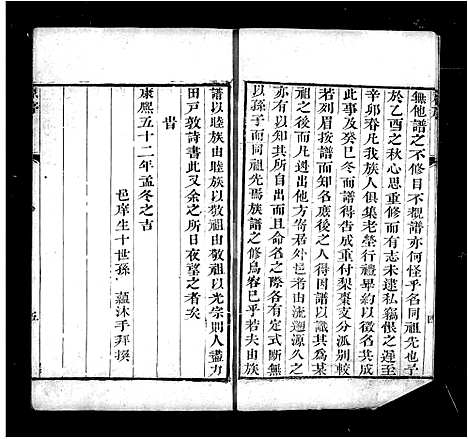 無他譜之不修目不覩譜亦何怪乎名同祖先也予
於乙酉之秋心思重修而有志未逮私竊恨之遲至
辛卯春凡我族人俱集老塋行禮畢約以徵名其成
此事及癸巳冬而譜得告成重付梨棗支分派別較
若列眉按譜而知名應後之人得因譜以識其為某
祖之後也而居凡遷出他方寄居外邑者由流遡源久之
亦有以知其所自出而且命名之際各有定式斷無
以孫子而同祖先焉族譜之修烏容已乎若夫由族
譜以睦族由睦族以敬祖由敬祖以光宗則人盡力
田戸敦詩書此又余之所日夜望之者矣
旹
康熙五十二年孟冬之吉
邑庠生十世孫 蘊沐手拜撰
四
五